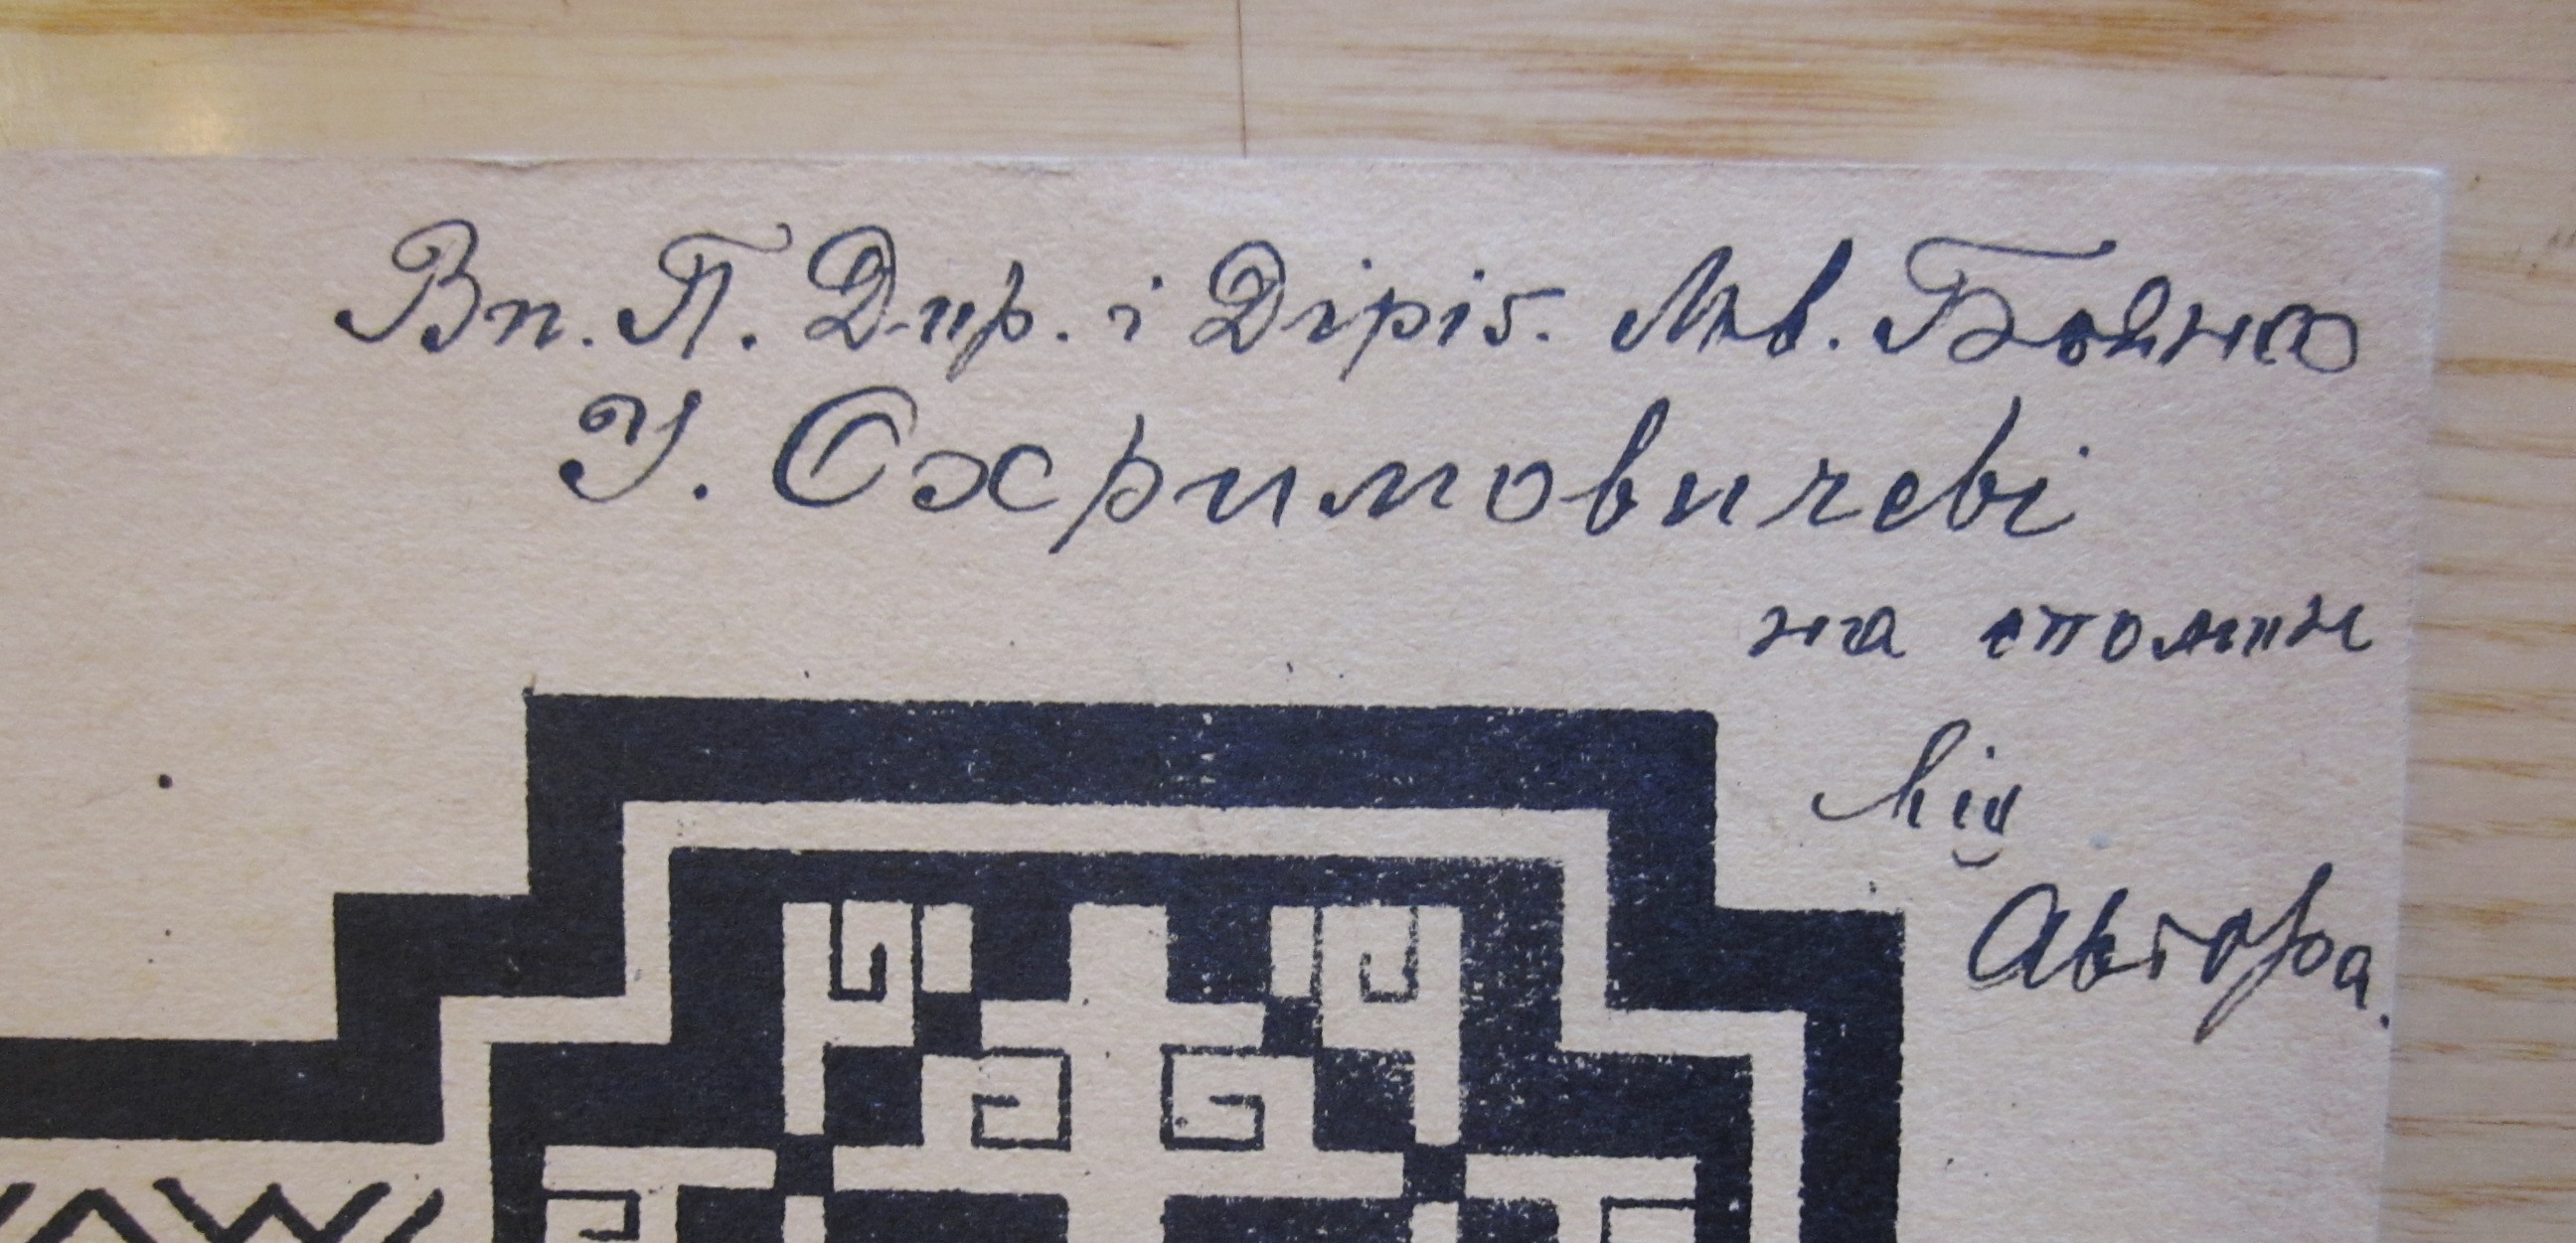 Вп. П. Дир. і Діріг. Льв. Бояно
У. Охримовичеві
на спомин
від
Автора.